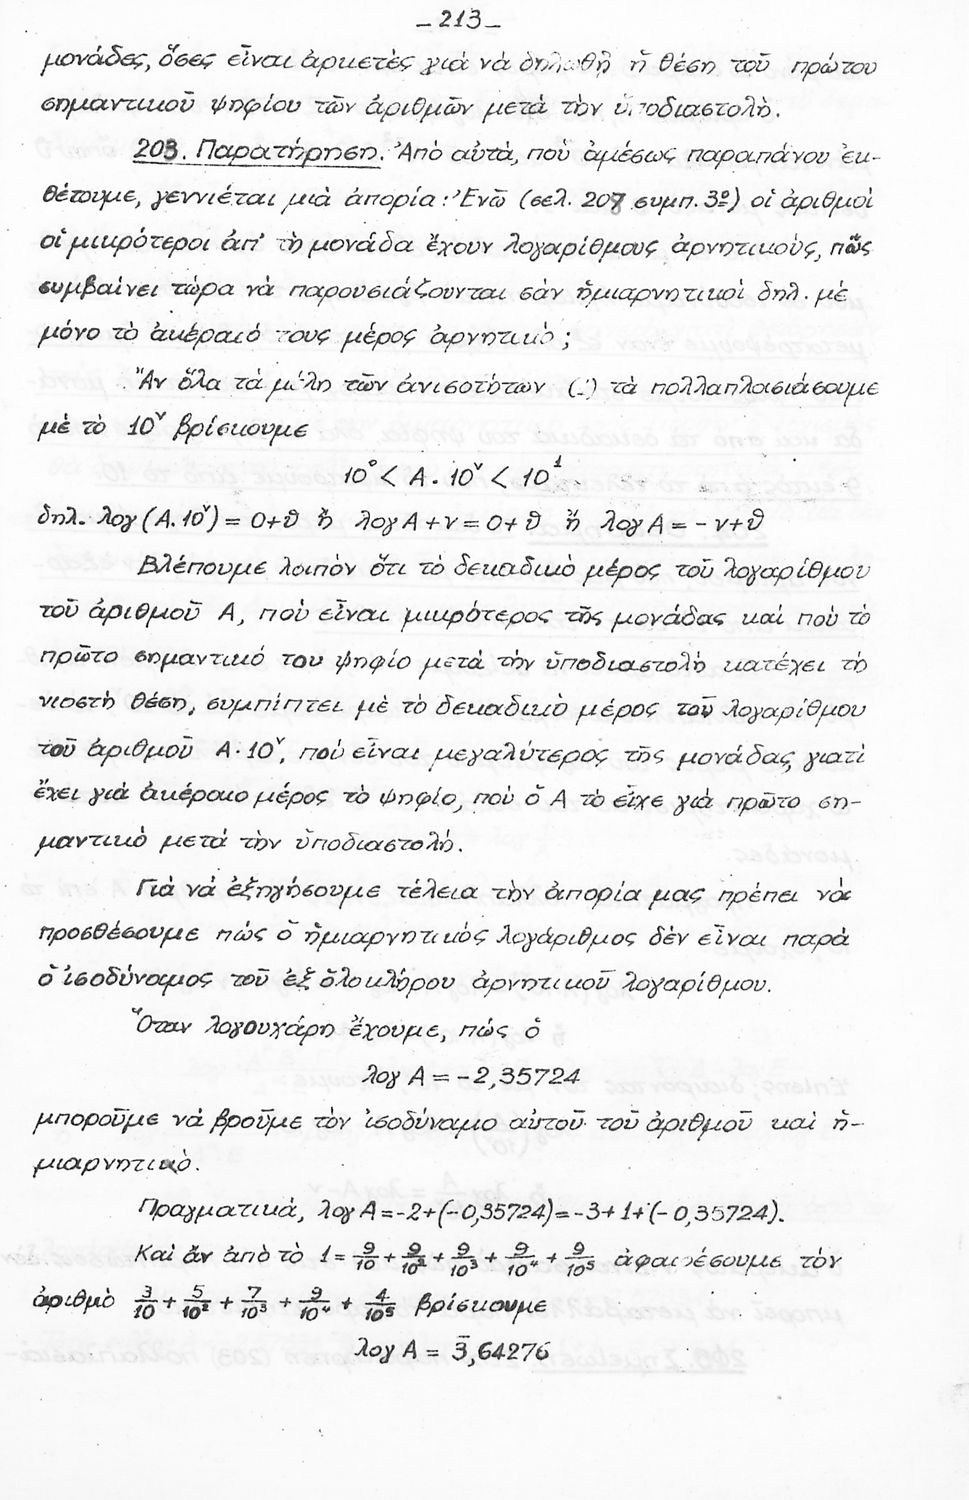 -213-
μονάδες, ὅσες εἶναι ἀρκετὲς γιὰ νὰ δηλωθῆ ἡ θέση τοῦ πρώτου
σημαντικοῦ ψηφίου τῶν ἀριθμῶν μετὰ τὴν ὑποδιαστολὴ.
203. Παρατήρηση. Ἀπὸ αὐτὰ, ποὺ ἀμέσως παραπάνου ἐκ-
θέτουμε, γεννιέται μιὰ ἀπορία: Ἐνῶ (σελ. 207 συμπ. 3º) οἱ ἀριθμοὶ
οἱ μικρότεροι ἀπ' τὴ μονάδα ἔχουν λογαρίθμους ἀρνητικοὺς, πῶς
συμβαίνει τώρα νὰ παρουσιάζουνται σὰν ἡμιαρνητικοὶ δηλ. μὲ
μόνο τὸ ἀκέραιό τους μέρος ἀρνητικὸ;
Ἂν ὅλα τὰ μέλη τῶν ἀνισοτήτων τὰ πολλαπλασιάσουμε
μὲ τὸ 10ᵛ βρίσκουμε
10⁰ < A . 10ᵛ < 10¹
δηλ. λογ (A. 10ᵛ) = 0+θ ἢ λογ A + ν = 0 + θ ἢ λογ A = - ν + θ
Βλέπουμε λοιπὸν ὅτι τὸ δεκαδικὸ μέρος τοῦ λογαρίθμου
τοῦ ἀριθμοῦ A, ποὺ εἶναι μικρότερος τῆς μονάδας καὶ ποὺ τὸ
πρῶτο σημαντικό του ψηφίο μετὰ τὴν ὑποδιαστολὴ κατέχει τὴ
νιοστὴ θέση, συμπίπτει μὲ τὸ δεκαδικὸ μέρος τοῦ λογαρίθμου
τοῦ ἀριθμοῦ A . 10ᵛ, ποὺ εἶναι μεγαλύτερος τῆς μονάδας γιατὶ
ἔχει γιὰ ἀκέραιο μέρος τὸ ψηφίο, ποὺ ὁ A τὸ εἶχε γιὰ πρῶτο ση-
μαντικὸ μετὰ τὴν ὑποδιαστολὴ.
Γιὰ νὰ ἐξηγήσουμε τέλεια τὴν ἀπορία μας πρέπει νὰ
προσθέσουμε πώς ὁ ἡμιαρνητικὸς λογάριθμος δὲν εἶναι παρὰ
ὁ ἰσοδύναμος τοῦ ἐξ ὁλοκλήρου ἀρνητικοῦ λογαρίθμου.
Ὅταν λογουχάρη ἔχουμε, πώς ὁ
λογ A = -2,35724
μποροῦμε νὰ βροῦμε τὸν ἰσοδύναμο αὐτοῦ τοῦ ἀριθμοῦ καὶ ἡ-
μιαρνητικὸ.
Πραγματικά, λογ A = -2 + (-0,35724) = -3 + 1 + (-0,35724).
Καὶ ἂν ἀπὸ τὸ 1 = 9/10 + 9/10² + 9/10³ + 9/10⁴ + 9/10⁵ ἀφαιρέσουμε τὸν
ἀριθμὸ 3/10 + 5/10² + 7/10³ + 2/10⁴ + 4/10⁵ βρίσκουμε
λογ A = 3̄,64276